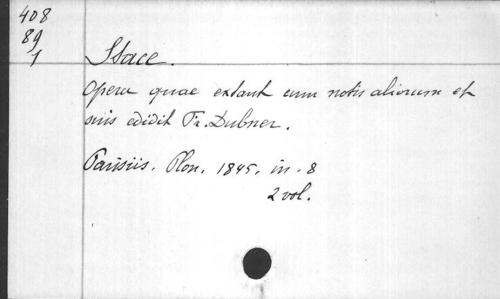 408
89
1
Stace.
Opera quae extant cum notis aliorum et
suis edidit Fr. Dubner.
Parisiis. Plon. 1845. in-8
2 vol.